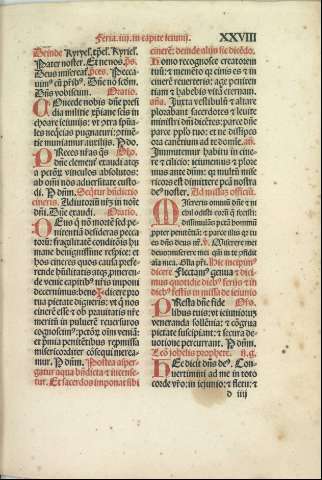 Feria.iiij.in capite ieiunij.
XXVIII
Deinde Kyryel. xp̄el. Kyriel.
Pater noster. Et ne nos. p̄s.
Deus misereat. p̄ces. Pecca-
Dn̄s vobiscum. Oratio.
Concede nobis dn̄e presi
dia militie xp̄iane scis in
choare ieiunijs: vt ꝯtra spūa-
les neq̄cias pugnaturi: ꝯtinē-
tie muniamur auxilijs. P do.
Preces n̄ras q̄s Oro.
dn̄e clemēter exaudi: atq̄
a petōꝝ vinculis absolutos:
ab om̄i nos aduersitate custo-
di. P dn̄m. Seq̄tur bn̄dictio
cineris. Adiutoriū nr̄ʒ in noīe
dn̄i. Dn̄e exaudi. Oratio.
Deus q̄ nō mortē sed pe-
nitentiā desideras pecca
torū: fragilitatē conditiōis hu
mane benignissime respice: et
hos cineres quos causa profe-
rende hūilitatis atq̄ promeren-
de venie capitib̄ n̄ris imponi
decernimus: bene✠dicere pro
tua pietate digneris: vt q̄ nos
cinerē esse et ob prauitatis nr̄e
meritū in puluerē reuersuros
cognoscim̄: petōꝝ oīm veniā:
et p̄mia penitētibus repromissa
misericorditer cōsequi merea-
mur. P dn̄m. Postea asper-
gatur aqua bn̄dicta et incense-
tur. Et sacerdos imponat sibi
cinerē: deinde alijs sic dicēdo.
Homo recognosce creatorem
tuū: ⁊ memēto q̄ cinis es et in
cinerē reuerteris: age penitēti
tiam ⁊ habebis vitā eternam.
añ. Juxta vestibulū ⁊ altare
plorabunt sacerdotes et leuite
ministri dn̄i dicētes: parce dn̄e
parce pplo tuo: et ne dissipes
ora canētium ad te dn̄e. añ.
Immutemur habitu in cine-
re ⁊ cilicio: ieiunemus ⁊ plore
mus ante dn̄m: q̄ multū mise
ricors est dimittere pctā nostra
de᷒ noster. Ad missā officiū.
Misereris omniū dn̄e ⁊ ni
chil odisti eoꝝ q̄ fecisti:
dissimulās pctā hominū
ppter penitētiā: ⁊ parce illis q̄ tu
es dn̄s deus nr̄. v. Miserere mei
deus miserere mei: qm̄ in te ꝯfidit
aīa mea. Gl̄a pr̄i.
dicere Flectam᷒ genua ⁊ dici-
mus quotidie dieb᷒ ferijs ⁊ in
dieb᷒ festis in missa de ieiunio
Presta dn̄e fide Oro.
libus tuis: vt ieiunioꝝ
veneranda sollēnia: ⁊ cōgrua
pietate suscipiant: ⁊ secura de-
uotione percurrant. P dn̄m.
Lcō iohelis prophete.
Hec dicit dn̄s de᷒. Con-
uertimini ad me in toto
corde vr̄o: in ieiunio: ⁊ fletu: ⁊
d iiij